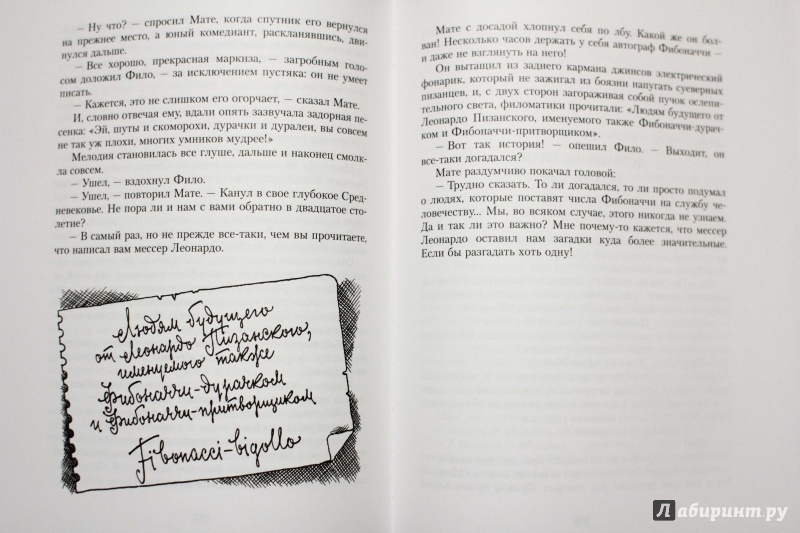 — Ну что? — спросил Мате, когда спутник его вернулся
на прежнее место, а юный комедиант, раскланявшись, дви-
нулся дальше.
— Все хорошо, прекрасная маркиза, — загробным голо-
сом доложил Фило, — за исключением пустяка: он не умеет
писать.
— Кажется, это не слишком его огорчает, — сказал Мате.
И, словно отвечая ему, вдали опять зазвучала задорная пе-
сенка: «Эй, шуты и скоморохи, дурачки и дуралеи, вы совсем
не так уж плохи, многих умников мудрее!»
Мелодия становилась все глуше, дальше и наконец смолк-
ла совсем.
— Ушел, — вздохнул Фило.
— Ушел, — повторил Мате. — Канул в свое глубокое Сред-
невековье. Не пора ли и нам с вами обратно в двадцатое сто-
летие?
— В самый раз, но не прежде все-таки, чем вы прочитаете,
что написал вам мессер Леонардо.
Людям будущего
от Леонардо Пизанского,
именуемого также
Фибоначчи-дурачком
и Фибоначчи-притворщиком
Fibonacci-bigollo
Мате с досадой хлопнул себя по лбу. Какой же он бол-
ван! Несколько часов держать у себя автограф Фибоначчи —
и даже не взглянуть на него!
Он вытащил из заднего кармана джинсов электрический
фонарик, который не зажигал из боязни напугать суеверных
пизанцев, и, с двух сторон загораживая собой пучок ослепи-
тельного света, филоматики прочитали: «Людям будущего от
Леонардо Пизанского, именуемого также Фибоначчи-дурач-
ком и Фибоначчи-притворщиком».
— Вот так история! — опешил Фило. — Выходит, он
все-таки догадался?
Мате раздумчиво покачал головой:
— Трудно сказать. То ли догадался, то ли просто подумал
о людях, которые поставят числа Фибоначчи на службу че-
ловечеству... Мы, во всяком случае, этого никогда не узнаем.
Да и так ли это важно? Мне почему-то кажется, что мессер
Леонардо оставил нам загадки куда более значительные.
Если бы разгадать хоть одну!
Лабиринт.ру